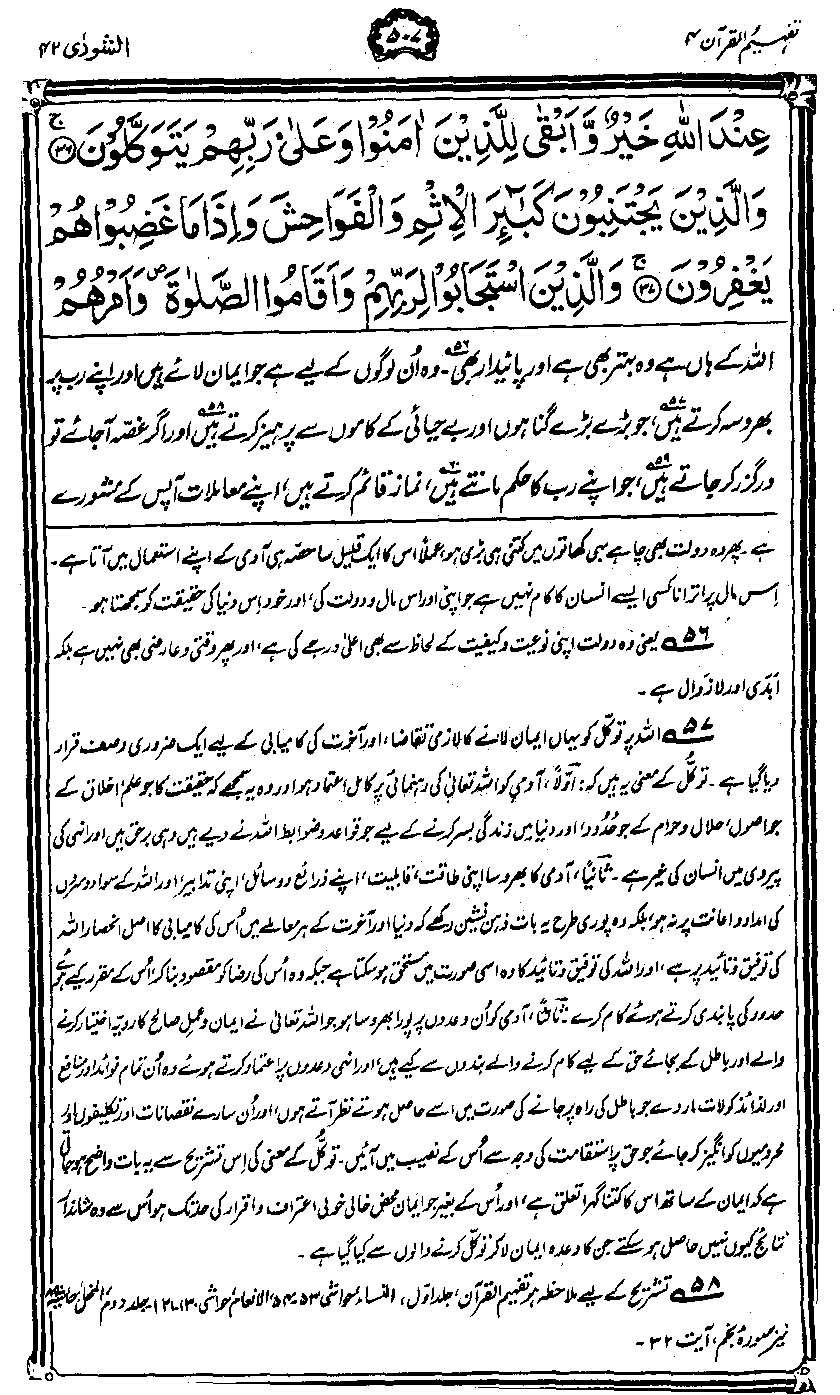 تفہیم القرآن ۴
۵۰۷
الشورٰی ۴۲
عِنْدَ اللّٰهِ خَيْرٌ وَّاَبْقٰى لِلَّذِيْنَ اٰمَنُوْا وَعَلٰى رَبِّهِمْ يَتَوَكَّلُوْنَ ۚ‏﴿۳۶﴾
وَالَّذِيْنَ يَجْتَنِبُوْنَ كَبٰٓئِرَ الْاِثْمِ وَالْفَوَاحِشَ وَاِذَا مَا غَضِبُوْا هُمْ
يَغْفِرُوْنَ ۚ‏﴿۳۷﴾ وَالَّذِيْنَ اسْتَجَابُوْا لِرَبِّهِمْ وَاَقَامُوا الصَّلٰوةَ ص وَاَمْرُهُمْ
اللہ کے ہاں ہے وہ بہتر بھی ہے اور پائیدار بھی۵۶۔ وہ اُن لوگوں کے لیے ہے جو ایمان لائے ہیں اور اپنے رب پر
بھروسہ کرتے ہیں۵۷، جو بڑے بڑے گناہوں اور بے حیائی کے کاموں سے پرہیز کرتے ہیں۵۸ اور اگر غصہ آجائے تو
درگزر کر جاتے ہیں۵۹، جو اپنے رب کا حکم مانتے ہیں۶۰، نماز قائم کرتے ہیں، اپنے معاملات آپس کے مشورے
ہے۔ پھر وہ دولت بھی چاہے بہی کھاتوں میں کتنی ہی بڑی ہو، عملاً اس کا ایک قلیل سا حصہ ہی آدمی کے اپنے استعمال میں آتا ہے۔
اِس مال پر اترانا کسی ایسے انسان کا کام نہیں ہے جو اپنی اور اس مال و دولت کی، اور خود اِس دنیا کی حقیقت کو سمجھتا ہو۔
۵۶ یعنی وہ دولت اپنی نوعیت و کیفیت کے لحاظ سے بھی اعلیٰ درجے کی ہے، اور پھر وقتی و عارضی بھی نہیں ہے بلکہ
اَبَدی اور لازوال ہے۔
۵۷ اللہ پر توکُّل کو یہاں ایمان لانے کا لازمی تقاضا، اور آخرت کی کامیابی کے لیے ایک ضروری وصف قرار
دیا گیا ہے۔ توکُّل کے معنی یہ ہیں کہ: اَوّلاً، آدمی کو اللہ تعالیٰ کی رہنمائی پر کامل اعتماد ہو اور وہ یہ سمجھے کہ حقیقت کا جو علم، اخلاق کے
جو اصول، حلال و حرام کے جو حُدُود، اور دنیا میں زندگی بسر کرنے کے لیے جو قواعد و ضوابط اللہ نے دیے ہیں وہی برحق ہیں اور انہی کی
پیروی میں انسان کی خیر ہے۔ ثانیاً، آدمی کا بھروسا اپنی طاقت، قابلیت، اپنے ذرائع و وسائل، اپنی تدابیر، اور اللہ کے سوا دوسروں
کی امداد و اعانت پر نہ ہو، بلکہ وہ پوری طرح یہ بات ذہن نشین رکھے کہ دنیا اور آخرت کے ہر معاملے میں اُس کی کامیابی کا اصل انحصار اللہ
کی توفیق و تائید پر ہے، اور اللہ کی توفیق و تائید کا وہ اسی صورت میں مستحق ہو سکتا ہے جبکہ وہ اُس کی رضا کو مقصود بنا کر، اُس کے مقرر کیے ہوئے
حدود کی پابندی کرتے ہوئے کام کرے۔ ثالثاً، آدمی کو اُن وعدوں پر پورا بھروسا ہو جو اللہ تعالیٰ نے ایمان و عمل صالح کا رویّہ اختیار کرنے
والے اور باطل کے بجائے حق کے لیے کام کرنے والے بندوں سے کیے ہیں، اور انہی وعدوں پر اعتماد کرتے ہوئے وہ اُن تمام فوائد اور منافع
اور لذائذ کو لات مار دے جو باطل کی راہ پر جانے کی صورت میں اسے حاصل ہوتے نظر آتے ہوں، اور اُن سارے نقصانات اور تکلیفوں اور
محرومیوں کو انگیز کر جائے جو حق پر استقامت کی وجہ سے اُس کے نصیب میں آئیں۔ توکُّل کے معنی کی اِس تشریح سے یہ بات واضح ہو جاتی
ہے کہ ایمان کے ساتھ اس کا کتنا گہرا تعلق ہے، اور اُس کے بغیر جو ایمان محض خالی خولی اعتراف و اقرار کی حد تک ہو اُس سے وہ شاندار
نتائج کیوں نہیں حاصل ہو سکتے جن کا وعدہ ایمان لا کر توکُّل کرنے والوں سے کیا گیا ہے۔
۵۸ تشریح کے لیے ملاحظہ ہو تفہیم القرآن، جلد اوّل، النساء، حواشی ۵۳۔۵۴، الانعام، حواشی ۱۳۰۔۱۳۱، جلد دوم، النحل، حاشیہ
نیز سورۂ نجم، آیت ۳۲۔